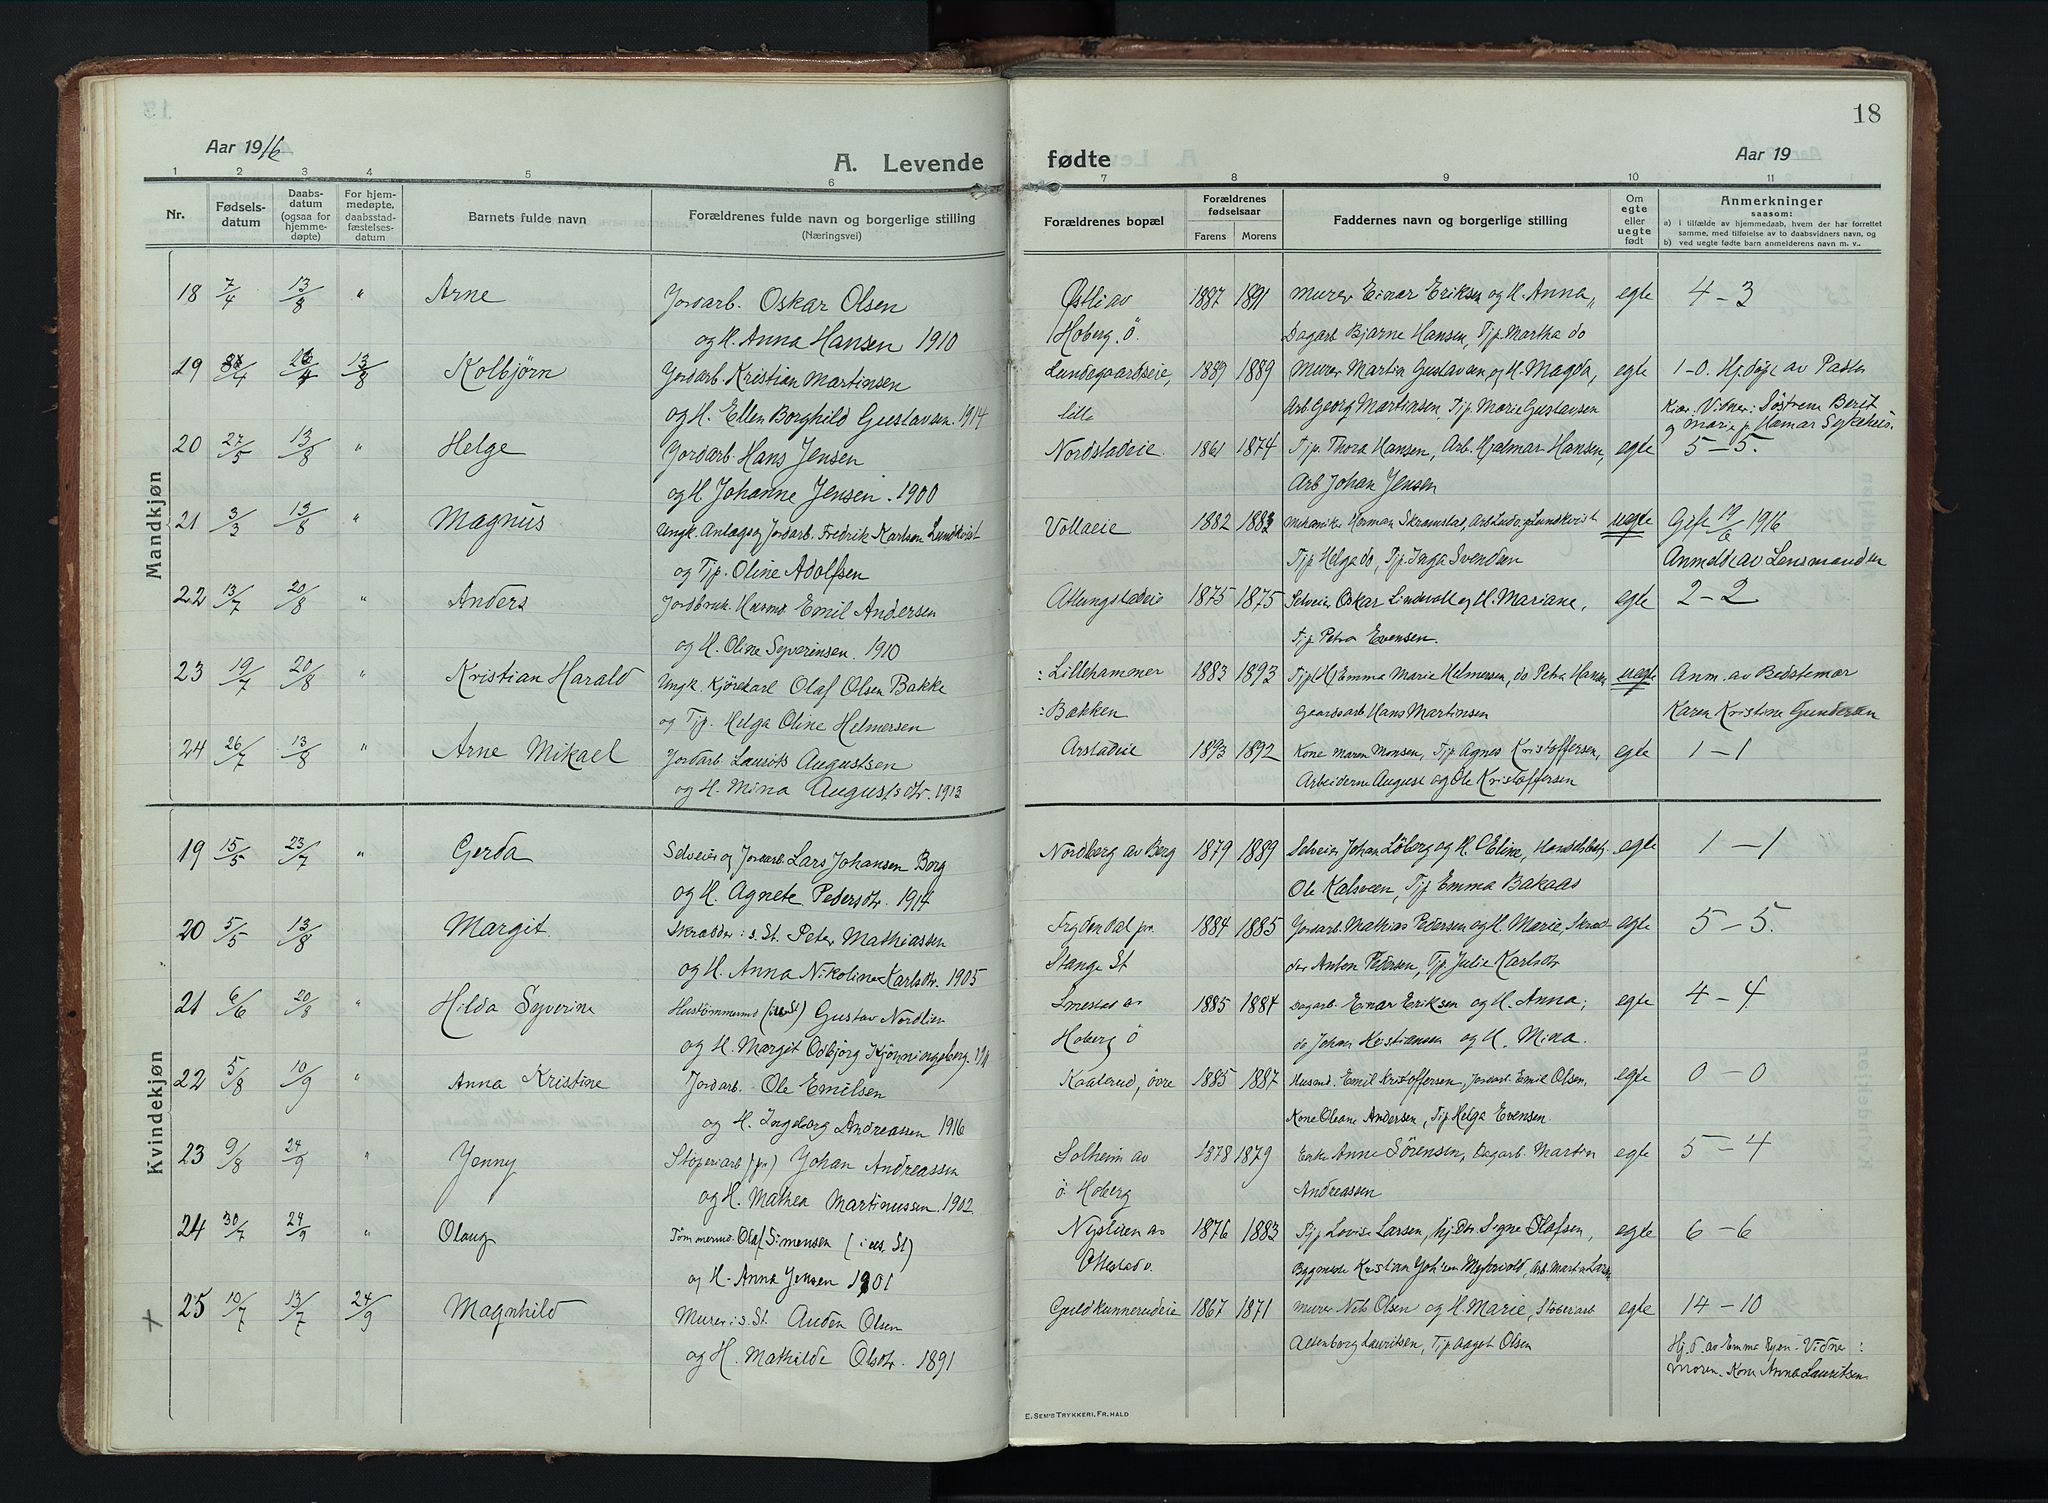 18
Aar 1916
A. Levende
fødte
Aar 19
1 2 3 4 5 6 7 8 9 10 11
Nr.
Fødsels-
datum
Daabs-
datum
(ogsaa for
hjemme-
døpte)
For hjem-
medøpte,
daabsstad-
fæstelses-
datum
Barnets fulde navn
Forældrenes fulde navn og borgerlige stilling
(Næringsvei)
Forældrenes bopæl
Forældrenes
fødselsaar
Farens Morens
Faddernes navn og borgerlige stilling
Om
egte
eller
uegte
født
Anmerkninger
saasom:
a) i tilfælde av hjemmedaab, hvem der har forrettet
samme, med tilføielse av to daabsvidners navn, og
b) ved uegte fødte barn anmelderens navn m. v..
Mandkjøn
18 7/4 13/8 " Arne Jordarb. Oskar Olsen Østli av 1887 1891 Murer Einar Eriksen og H. Anna, egte 4 - 3
og H. Anna Hansen 1910 Hoberg, ö. Dagarb Bjarne Hansen, Tjp. Martha do
19 13/8 Kolbjørn Jordarb. Kristian Martinsen Lundegaardseie, 1889 1889 Murer Martin Gustavsen og H. Magda, egte 1-0. Hj.døpt av Pastor
og H. Ellen Borghild Gustavsen. 1914 lille Arb. Georg Martinsen, Tjp. Marie Gustavsen Kiær. Vidner: Søstrene Berit
og Marie p. Hamar Sykehus.
20 27/5 13/8 " Helge Jordarb Hans Jensen Nordstadeie. 1861 1874 Tjp. Thora Hansen, Arb. Hjalmar Hansen, egte 5 - 5.
og H. Johanne Jensen. 1900 Arb Johan Jensen
21 3/3 13/8 " Magnus Ungk. Anlægs og Jordarb. Fredrik Karlsen Lundkvist Vollaeie 1882 1883 Mekaniker Herman Skramstad, Arb Ludvig Lundkvist uegte Gift 19/6 1916
og Tjp. Oline Adolfsen Tjp Helga do, Tjp. Inga Svendsen Anmeldt av Lensmanden
22 13/7 20/8 " Anders Jordbruk. Husmd Emil Andersen Atlungstadeie 1875 1875 Selveier Oskar Lindvoll og H. Mariane, egte 2 - 2
og H. Oline Syverinsen. 1910 Tjp Petra Evensen.
23 19/7 20/8 " Kristian Harald Ungk. Kjørekarl Olaf Olsen Bakke : Lillehammer 1883 1893 Tjp (H) Emma Marie Helmersen, do Petra Hansen uegte Anm. av Bedstemor
og Tjp. Helga Oline Helmersen : Bækken Gaardsarb Hans Martinsen Karen Kristine Gundersen
24 26/7 13/8 " Arne Mikael Jordarb Laurits Augustsen Arstadeie 1893 1892 Kone Maren Monsen, Tjp Agnes Kristoffersen, egte 1 - 1
og H. Mina Augustsdtr. 1913 Arbeiderne August og Ole Kristoffersen
Kvindekjøn
19 15/5 23/7 " Gerda Selveier og Jordarb Lars Johansen Borg Nordberg av Berg 1879 1889 Selveier Johan Löberg og H. Eline, Handelsbest. egte 1 - 1
og H. Agnete Pedersdtr. 1914 Ole Kalsveen, Tjp Emma Bakaas
20 5/5 13/8 Margit. Skrædder i s. St. Peter Mathiassen Frydendal pr. 1884 1885 Jordarb. Mathias Pedersen og H. Marie, Skræd- egte 5 - 5.
og H. Anna Nikoline Karlsdtr. 1905 Stange St der Anton Pedersen, Tjp Julie Karlsdtr
21 6/6 20/8 " Hilda Syverine Hustømmermd Gustav Nordlien Imestad av 1885 1884 Dagarb. Einar Eriksen og H. Anna, egte 4 - 4.
og H. Margit Odbjörg Kjønningsberg. Hoberg ö do Johan Kristiansen og H. Mina.
22 5/8 10/9 " Anna Kristine Jordarb. Ole Emilsen Kaaterud, övre 1885 1887 Husmd. Emil Kristoffersen, Jordarb Emil Olsen, egte 0 - 0
og H. Ingeborg Andreassen 1916 Kone Oleane Andersen, Tjp Helga Evensen.
23 9/8 24/9 " Jenny Støperiarb (pr) Johan Andreassen Solheim av 1878 1879 Enke Anne Sörensen, Dagarb. Martin egte 5 - 4
og H. Mathea Martinussen. 1902. ö. Hoberg Andreassen
24 30/7 24/9 " Olaug Tömmermd. Olaf Simensen Nystuen av 1876 1883 Tjp Lovise Larsen, hj. Dtr Signe Olafsen, egte 6 - 6
og H. Anna Jensen 1901 Ottestad v. Bygmester Kristian Arb. Martin Larsen
+ 25 10/7 13/7 24/9 Magnhild Murer i s. St. Auden Olsen Guldkunnerudeie 1867 1871 Murer Nils Olsen og H. Marie, Støberarb egte 14 - 10
og H. Mathilde Olsdtr. 1891 Altenborg Lauritsen, Tjp Aagot Olsen Hj. d. av Emma Vidner:
Moren. Kone Anna Lauritsen.
E. SEM'S TRYKKERI, FR.HALD